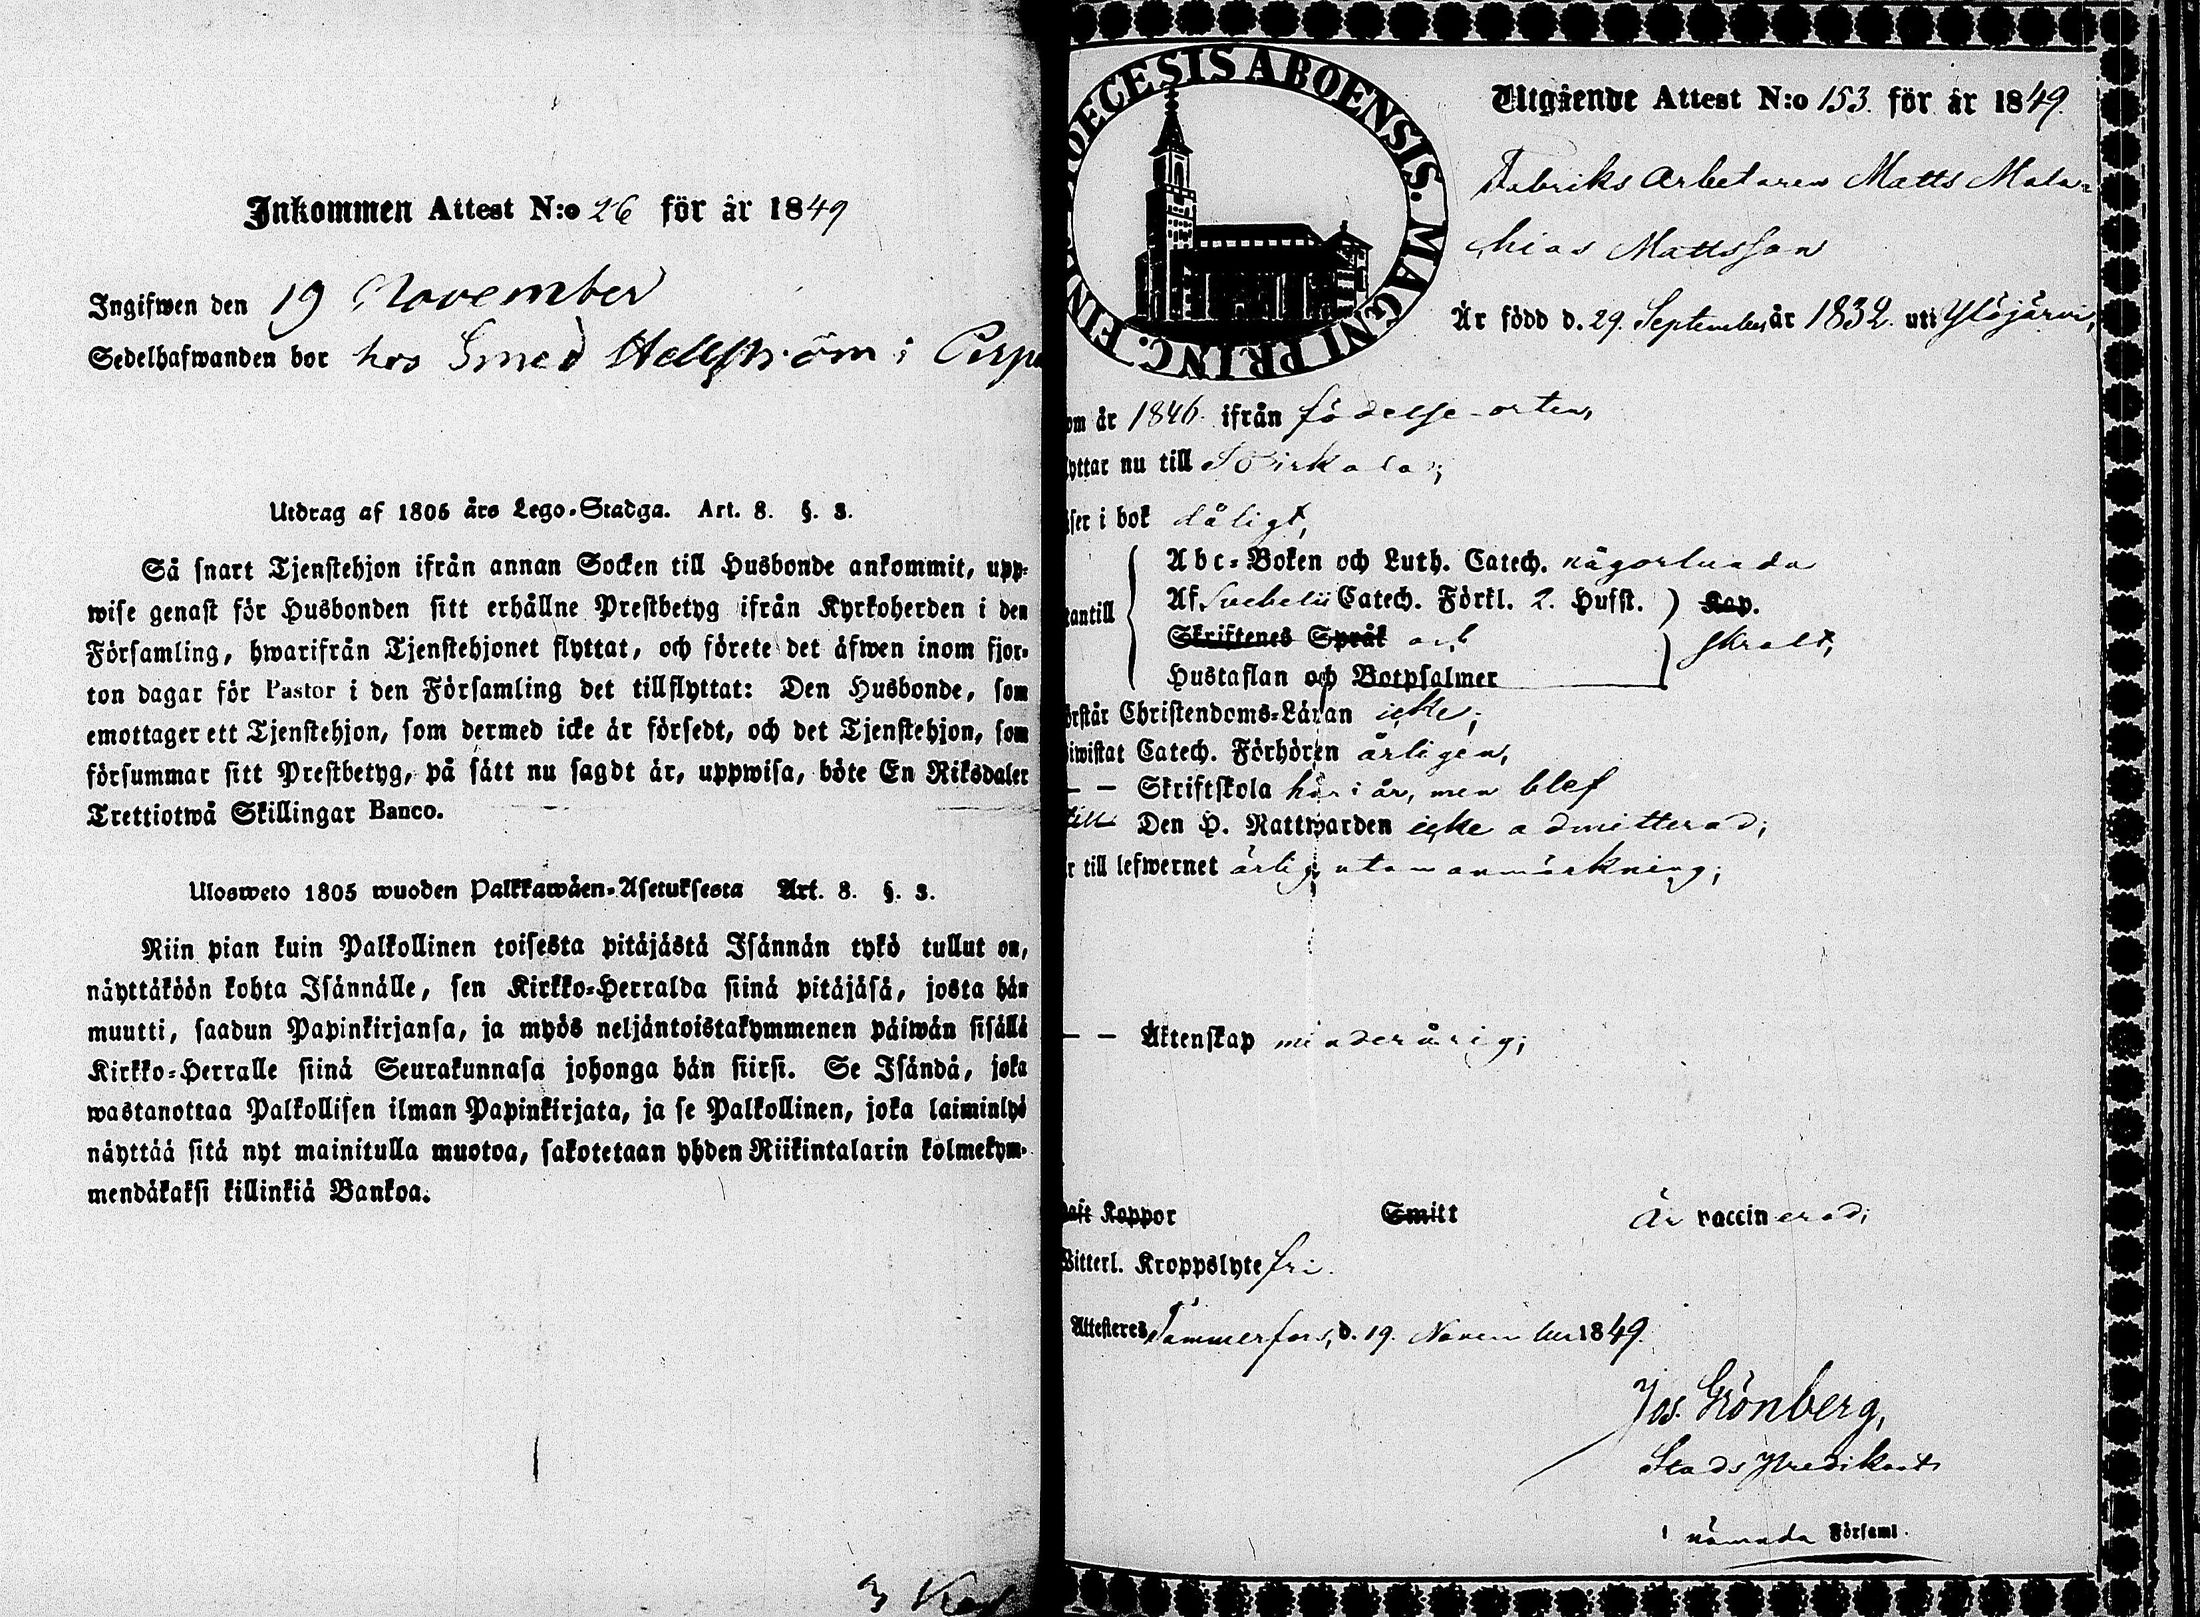 Inkommen Attest N:o 26 för år 1849
Ingifwen den 19 November
Sedelhafwanden bor hos Smed Hellström i
Utdrag af 1805 års Lego-Stadga. Art. 8. §. 3.
Så snart Tjenstehjon ifrån annan Socken till Husbonde ankommit, upp-
wise genast för Husbonden sitt erhållne Prestbetyg ifrån Kyrkoherden i den
Församling, hwarifrån Tjenstehjonet flyttat, och förete det äfwen inom fjor-
ton dagar för Pastor i den Församling det tillflyttat: Den Husbonde, som
emottager ett Tjenstehjon, som dermed icke är försedt, och det Tjenstehjon, som
försummar sitt Prestbetyg, på sätt nu sagdt är, uppwisa, böte En Riksdaler
Trettiotwå Skillingar Banco.
Ulosweto 1805 wuoden Palkkawäen-Asetuksesta Art. 8. §. 3.
Niin pian kuin Palkollinen toisesta pitäjästä Isännän tykö tullut on,
näyttäköön kohta Isännälle, sen Kirkko-Herralda siinä pitäjäsä, josta hän
muutti, saadun Papinkirjansa, ja myös neljäntoistakymmenen päiwän sisällä
Kirkko-Herralle siinä Seurakunnasa johonga hän siirsi. Se Isändä, joka
wastanottaa Palkollisen ilman Papinkirjata, ja se Palkollinen, joka laiminlyö
näyttää sitä nyt mainitulla muotoa, sakotetaan yhden Riikintalarin kolmekym-
mendäkaksi killinkiä Bankoa.
3
DIOECESIS ABOENSIS. MAGNI PRINC. FIN
Utgående Attest N:o 153. för år 1849.
Fabriks Arbetaren Matts Mala-
chias Mattsson
Är född d. 29. September år 1832. uti Ylöjärvi,
om år 1846. ifrån födelse-orten,
yttar nu till Birkala;
äser i bok dåligt,
tantill
Abc-Boken och Luth. Catech. någorlunda
Af Svebelii Catech. Förkl. 2. Husst. ) Kap.
Skriftenes Språk och
skralt,
Hustaflan och Botpsalmer
örstår Christendoms-Läran icke;
iwistat Catech. Förhören årligen,
– – Skriftskola här i år, men blef
till Den H. Nattwarden icke admitterad;
r till lefwernet ärlig, utan anmärkning;
– – Äktenskap minderårig;
haft Koppor Smitt Är vaccinerad;
Witterl. Kroppslyte fri.
Attesteres Tammerfors, d. 19. November 1849.
Jos. Grönberg,
Stads Predikant
i nämnda Församl.